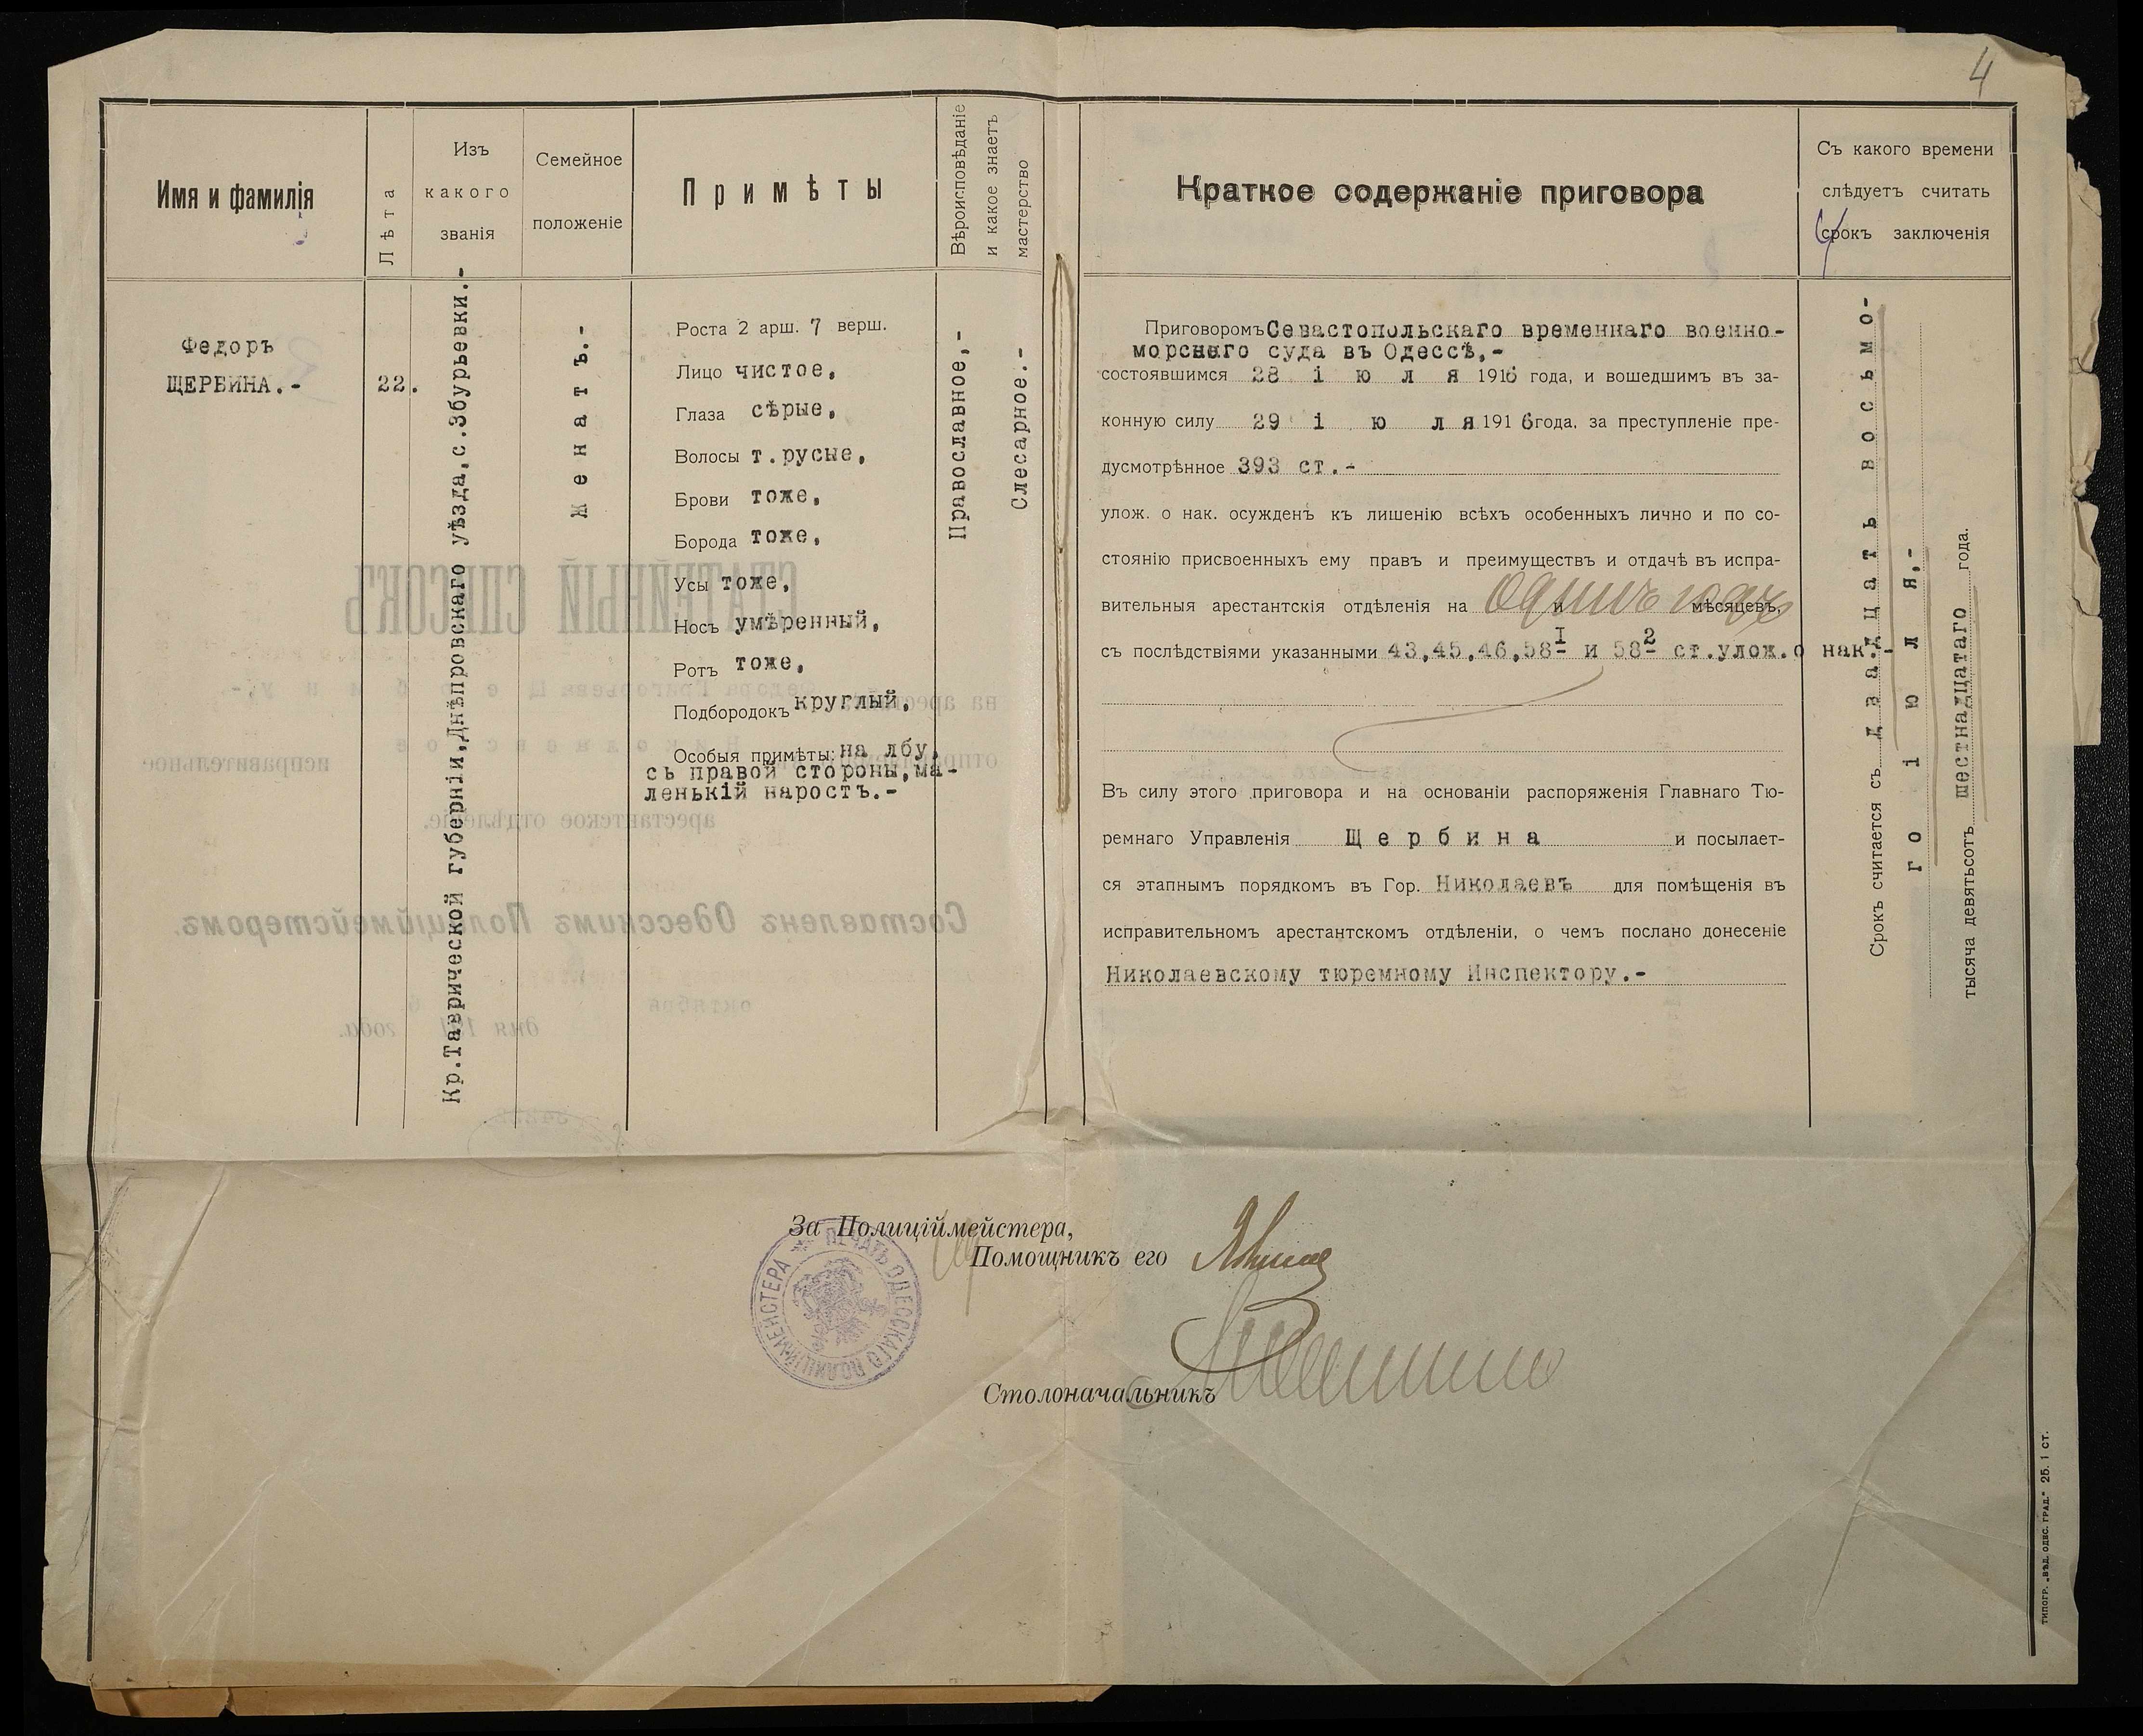 4
Имя и фамилія
Лѣта
Изъ
какого
званія
Семейное
положеніе
Примѣты
Вѣроисповѣданіе
и какое знаетъ
мастерство
Краткое содержаніе приговора
Съ какого времени
слѣдуетъ считать
срокъ заключенія
Федоръ
ЩЕРБИНА.-
22.
Кр.Таврической губерніи,Днѣпровскаго уѣзда,с.Збурьевки.-
Женатъ.-
Роста 2 арш. 7 верш.
Лицо чистое,
Глаза сѣрые,
Волосы т.русые,
Брови тоже,
Борода тоже,
Усы тоже,
Носъ умѣренный,
Ротъ тоже,
Подбородокъ круглый,
Особыя примѣты: на лбу,
съ правой стороны,ма-
ленькій наростъ.-
Православное,-
Слесарное.-
Приговоромъ Севастопольскаго временнаго военно-
морского суда въ Одессѣ,-
состоявшимся 28 іюля 1916 года, и вошедшимъ въ за-
конную силу 29 іюля 1916 года, за преступленіе пре-
дусмотрѣнное 393 ст.-
улож. о нак. осужденъ къ лишенію всѣхъ особенныхъ лично и по со-
стоянію присвоенныхъ ему правъ и преимуществъ и отдачѣ въ испра-
вительныя арестантскія отдѣленія на одинъ годъ и мѣсяцевъ,
съ послѣдствіями указанными 43,45,46,58 I и 58 2 ст.улож.о нак.-
Въ силу этого приговора и на основаніи распоряженія Главнаго Тю-
ремнаго Управленія Щербина и посылает-
ся этапнымъ порядкомъ въ Гор. Николаевъ для помѣщенія въ
исправительномъ арестантскомъ отдѣленіи, о чемъ послано донесеніе
Николаевскому тюремному Инспектору.-
Срокъ считается съ двадцать восьмо-
го іюля,-
тысяча девятьсотъ шестнадцатаго года.
За Полиціймейстера,
Помощникъ его
Столоначальникъ
ПЕЧАТЬ ОДЕССКАГО ПОЛИЦІЙМЕЙСТЕРА
ТИПОГР. „ВѢД. ОДЕС. ГРАД.“ 25. 1 СТ.